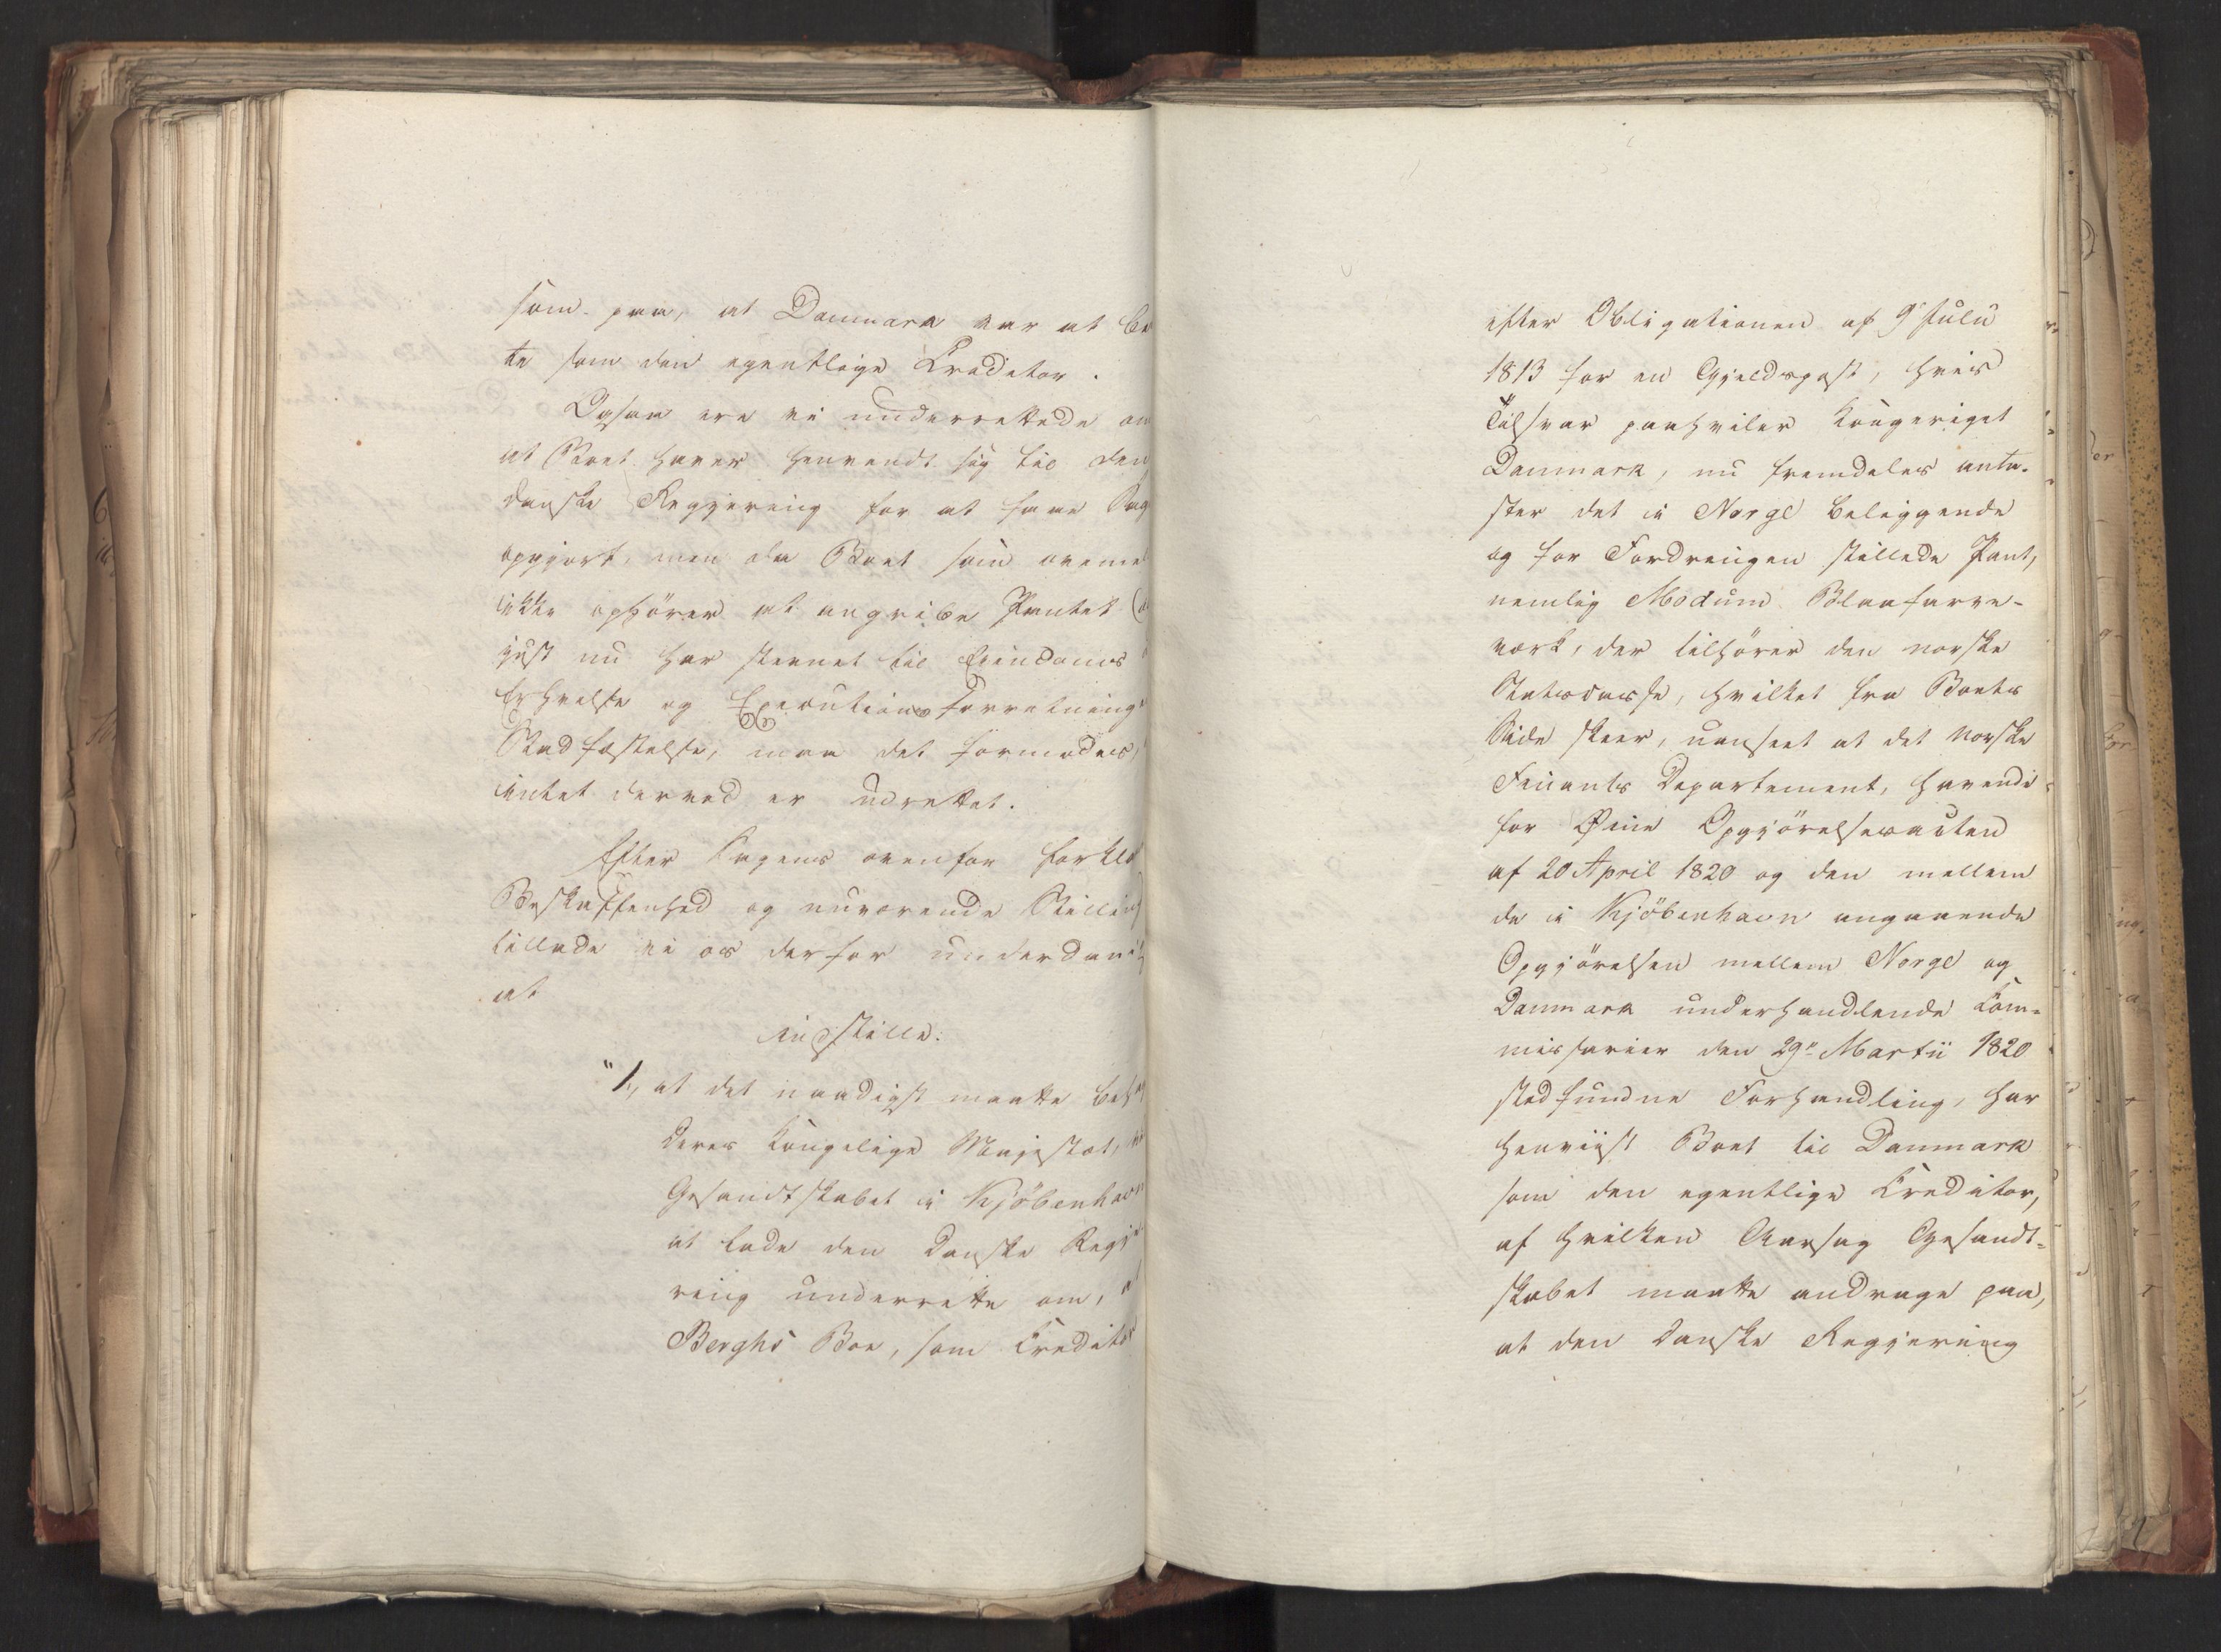 som paa, at Danmark var at be
te som den egentlige Creditor.
Ogsaa ere vi underrettede om
at Boet haver henvendt sig til den
danske Regjering for at faae Sag
opgjort, men da Boet som ovenme
ikke ophører at angribe Pantet (
just nu har stevnet til Eiendoms
Erhvelse og Executions Forretning
Stadfæstelse, maa det formodes,
intet derved er udrettet.
Efter Sagens ovenfor forkla
Beskaffenhed og nuværende Stilling
tillade vi os derfor underdanig
at
indstille:
"1, at det naadigst maatte beha
Deres Kongelige Majestæt,
Gesandtskabet i Kjöbenhavn
at lade den danske Regje
ring underrette om, a
Berghs Boe, som Creditor
efter Obligationen af 9 Julii
1813 for en Gjeldspost, hvis
Tilsvar paahviler Kongeriget
Danmark, nu fremdeles anta-
ster det i Norge beliggende
og for Fordringen stillede Pant,
nemlig Modum Blaafarve-
værk, der tilhører den norske
Statscasse, hvilket fra Boets
Side skeer, uanseet at det norske
Finants Departement, havende
for Øine Opgjörelsesacten
af 20 April 1820 og den mellem
de i Kjöbenhavn angaaende
Opgjörelsen mellem Norge og
Danmark underhandlende Com-
missarier den 29n Martii 1820
stedfundne Forhandling, har
henviist Boet til Danmark
som den egentlige Creditor,
af hvilken Aarsag Gesandt-
skabet maatte andrage paa,
at den danske Regjering